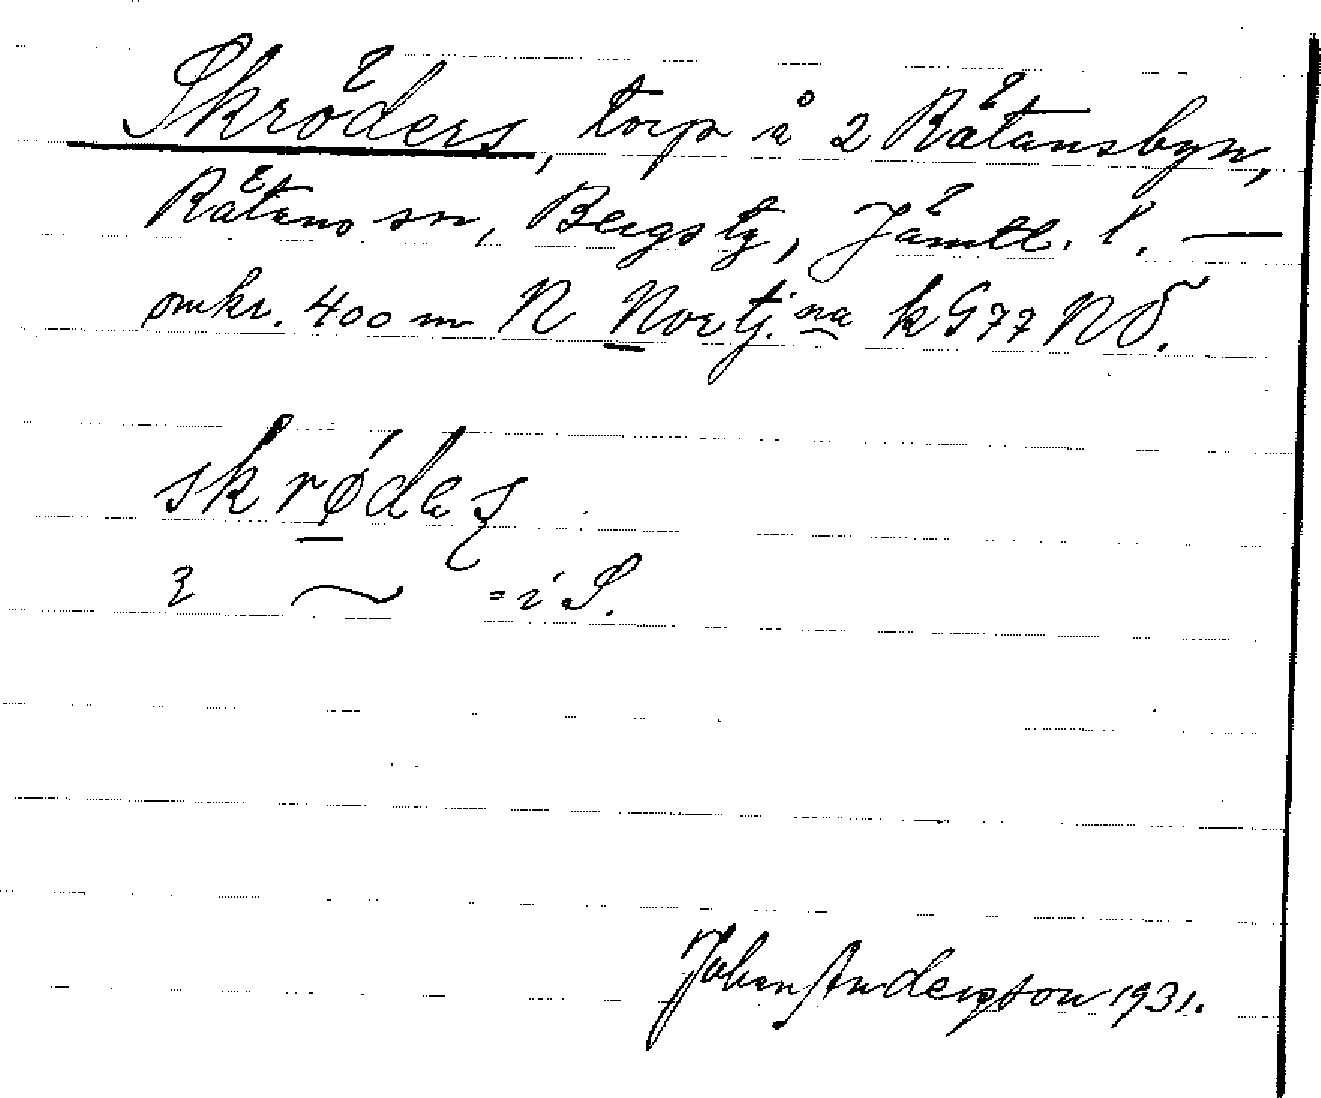 Skröders, torp å 2 Rätansbyn,
Rätans sn, Bergs tg, Jämtl. l. —
omkr. 400 m N Nortj:na k G 77 NÖ.
skrødeʂ
~ = i S.
Johan Anderson 1931.